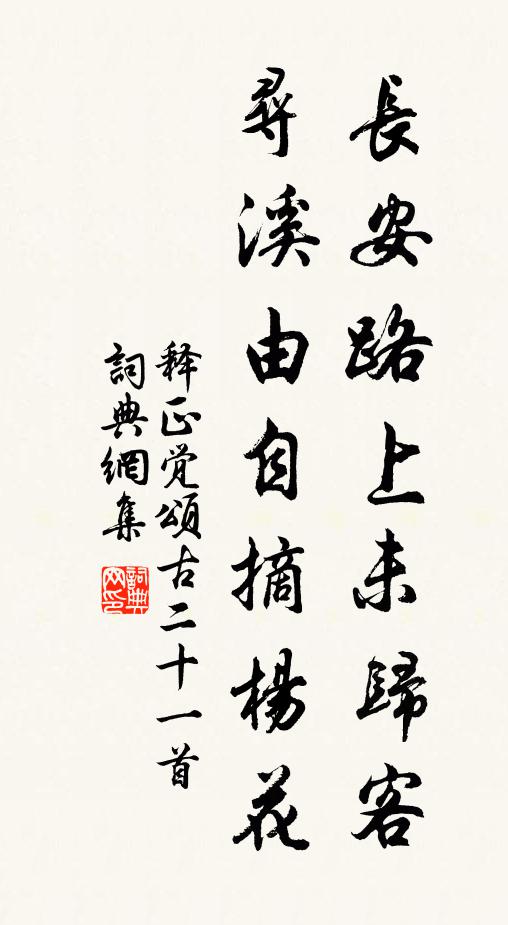 長安路上未歸客
尋溪由自摘楊花
释正觉頌古二十一首
詞典網集
詞典網印